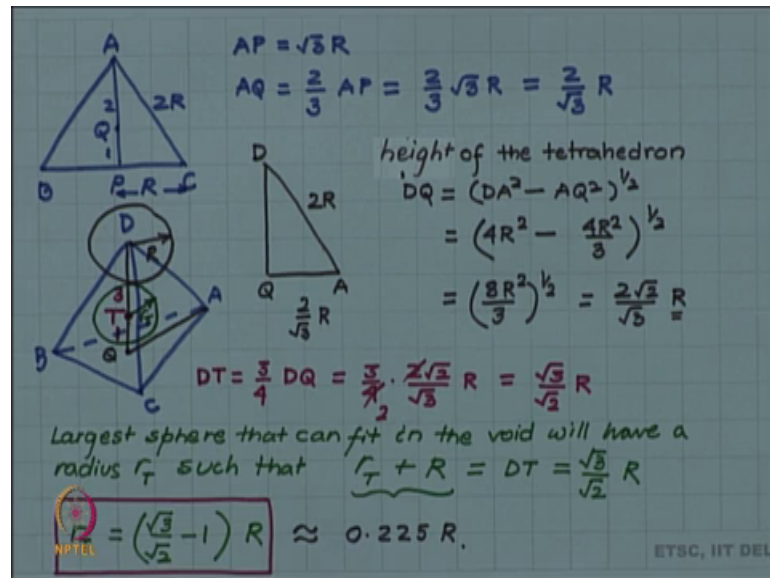 A
2
Q
1
2R
B
P
← R →
C
AP = √3 R
AQ = 2/3 AP = 2/3 √3 R = 2/√3 R
D
2R
Q
A
2/√3 R
height of the tetrahedron
DQ = (DA² − AQ²)^1/2
= (4R² − 4R²/3)^1/2
= (8R²/3)^1/2 = 2√2/√3 R
D
R
3
T
1
Q
A
B
C
DT = 3/4 DQ = 3/4 2 · 2√2/√3 R = √3/√2 R
Largest sphere that can fit in the void will have a
radius r_T such that r_T + R = DT = √3/√2 R
= (√3/√2 − 1) R ≈ 0.225 R.
NPTEL
ETSC, IIT DEL